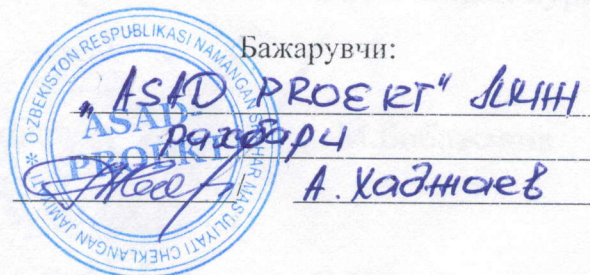 Бажарувчи:
„ASAD PROEKT" МЧЖ
раҳбари
А. Хаджаев
O'ZBEKISTON RESPUBLIKASI NAMANGAN SHAHAR MAS'ULIYATI CHEKLANGAN JAMIYATI
ASAD-
PROEKT